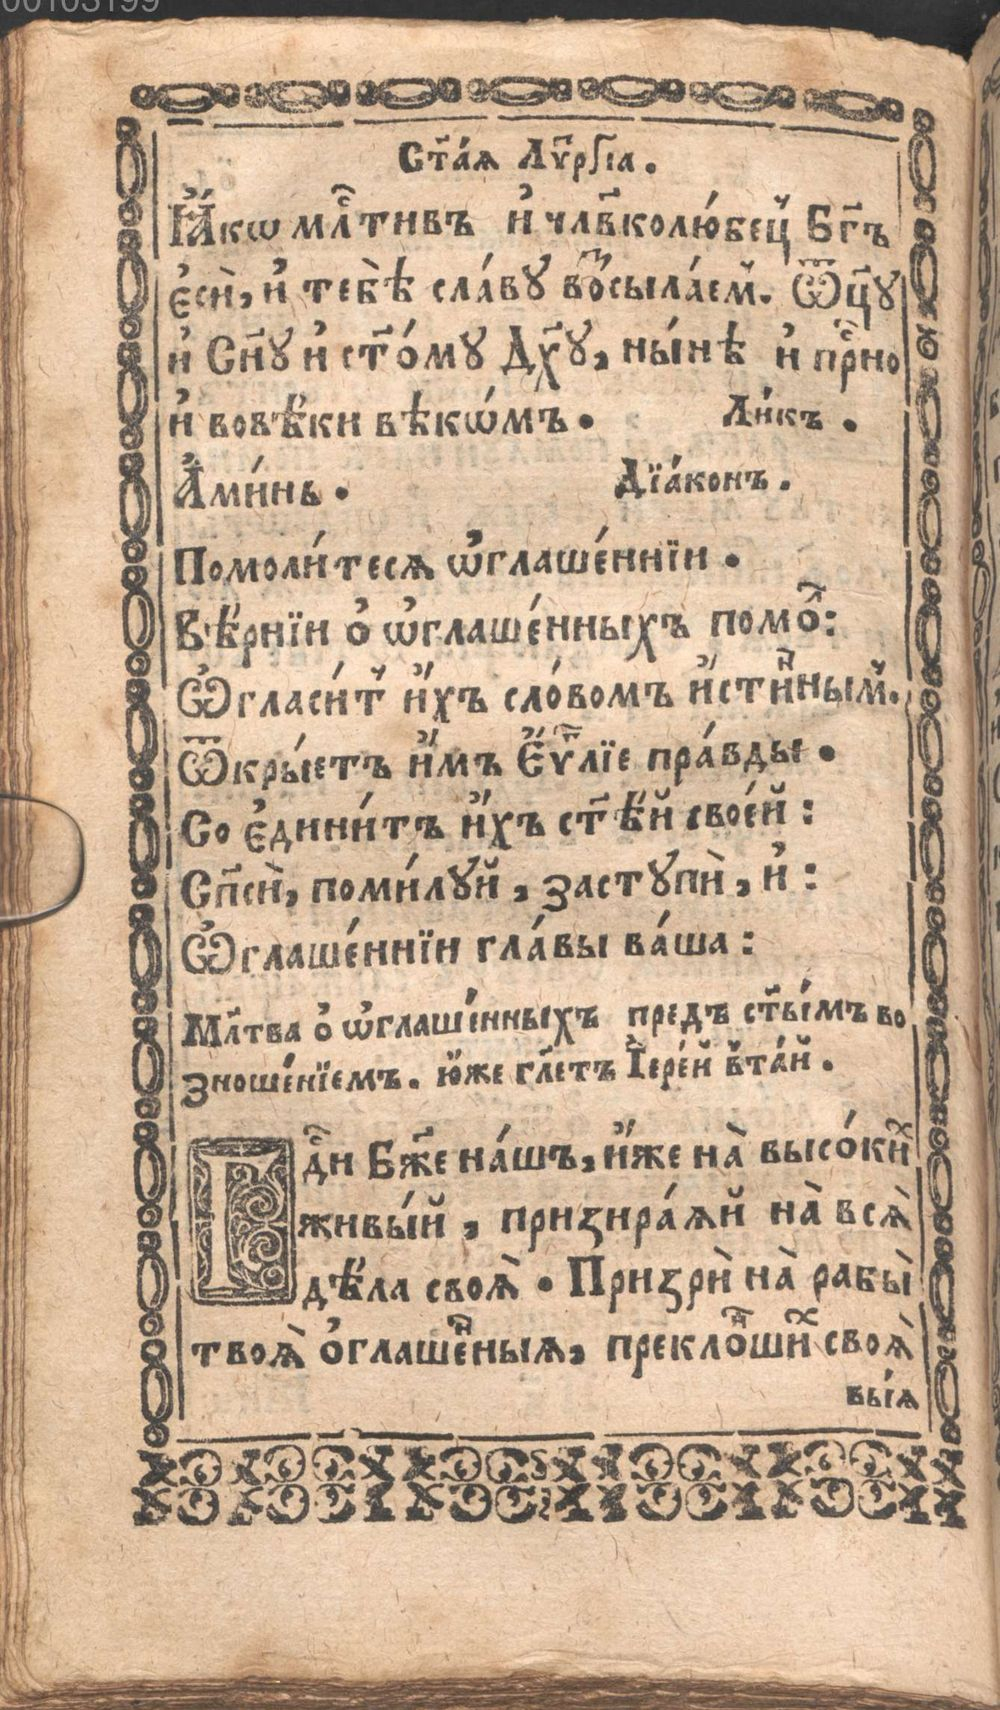 00103199
Ст҃а́ѧ Лѷⷬ҇гіа.
Ꙗ҆́кѡ млⷭ҇тивъ и҆ чл҃вколю́бецⸯ Бг҃ъ
є҆сѝ, и҆ тебѣ̀ сла́вꙋ воⷥсыла́емⸯ. Ѿц҃ꙋ
и҆ Сн҃ꙋ и҆ ст҃о́мꙋ Дх҃ꙋ, ны́нѣ и҆ прⷭ҇но
и҆ вовѣ́ки вѣкѡ́мъ. Ли́къ.
А҆ми́нь. Дїа́конъ.
Помоли́тесѧ ѡ҆глаше́ннїи.
Вѣ́рнїи ѻ҆ ѡ҆глаше́нныхъ помоⷧ҇:
Ѡ҆гласи́тⸯ и҆́хъ сло́вомъ и҆́стиⷩ҇нымⸯ.
Ѿкры́етъ и҆́мъ Є҆ѵⷢ҇лїе пра́вды.
Со є҆дини́тъ и҆́хъ ст҃ѣ́й свое́й:
Сп҃сѝ, поми́лꙋй, застꙋпѝ, и҆:
Ѡ҆глаше́ннїи гла́вы ва́ша:
Мл҃тва ѻ҆ ѡ҆глаше́нныхъ предъ ст҃ы́мъ во
зноше́нїемъ. ю҆́же гл҃етъ І҆ере́й вⸯта́й.
Гдⷭ҇и Бж҃е на́шъ, и҆́же на̀ высо́киⷯ
живы́й, призира́ѧй на̀ всѧ̀
дѣ́ла своѧ̀. Призрѝ на̀ рабы̀
твоѧ̀ ѻ҆глашеⷩ҇ныѧ, преклоⷩ҇шиⷯ своѧ̀
вы́ѧ